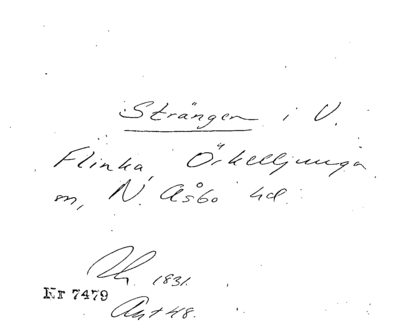 Strängen i V.
Flinka, Örkelljunga
m, N. Åsbo hd.
1831.
Nr 7479
Akt 48.